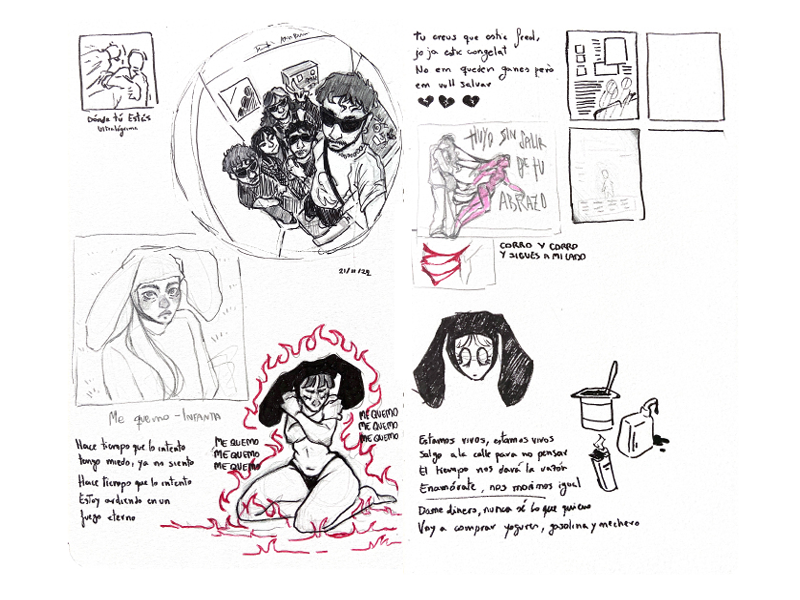 Dónde tú Estás
Ultralágrima
21/11/23
Me quemo - INFANTA
Hace tiempo que lo intento
tengo miedo, ya no siento
Hace tiempo que lo intento
Estoy ardiendo en un
fuego eterno
ME QUEMO
ME QUEMO
ME QUEMO
ME QUEMO
ME QUEMO
ME QUEMO
tu creus que estic fred,
jo ja estic congelat
No em queden ganes però
em vull salvar
HUYO SIN SALIR
DE TU
ABRAZO
CORRO Y CORRO
Y SIGUES A MI LADO
Estamos vivos, estamos vivos
Salgo a la calle para no pensar
El tiempo nos dará la razón
Enamórate, nos morimos igual
Dame dinero, nunca sé lo que quiero
Voy a comprar yogures, gasolina y mechero